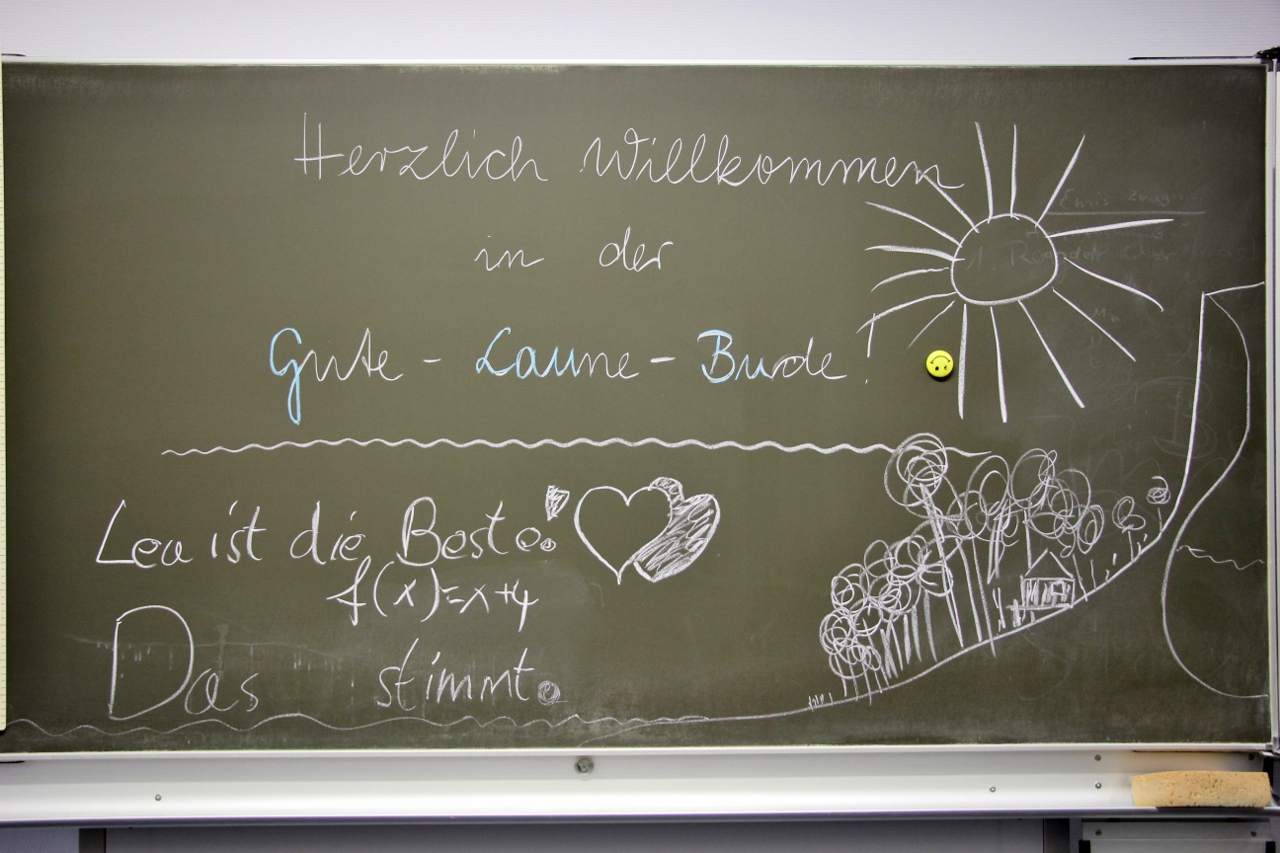 Herzlich Willkommen
in der
Gute - Laune - Bude!
Lea ist die Beste.
f(x)=x+4
Das stimmt.